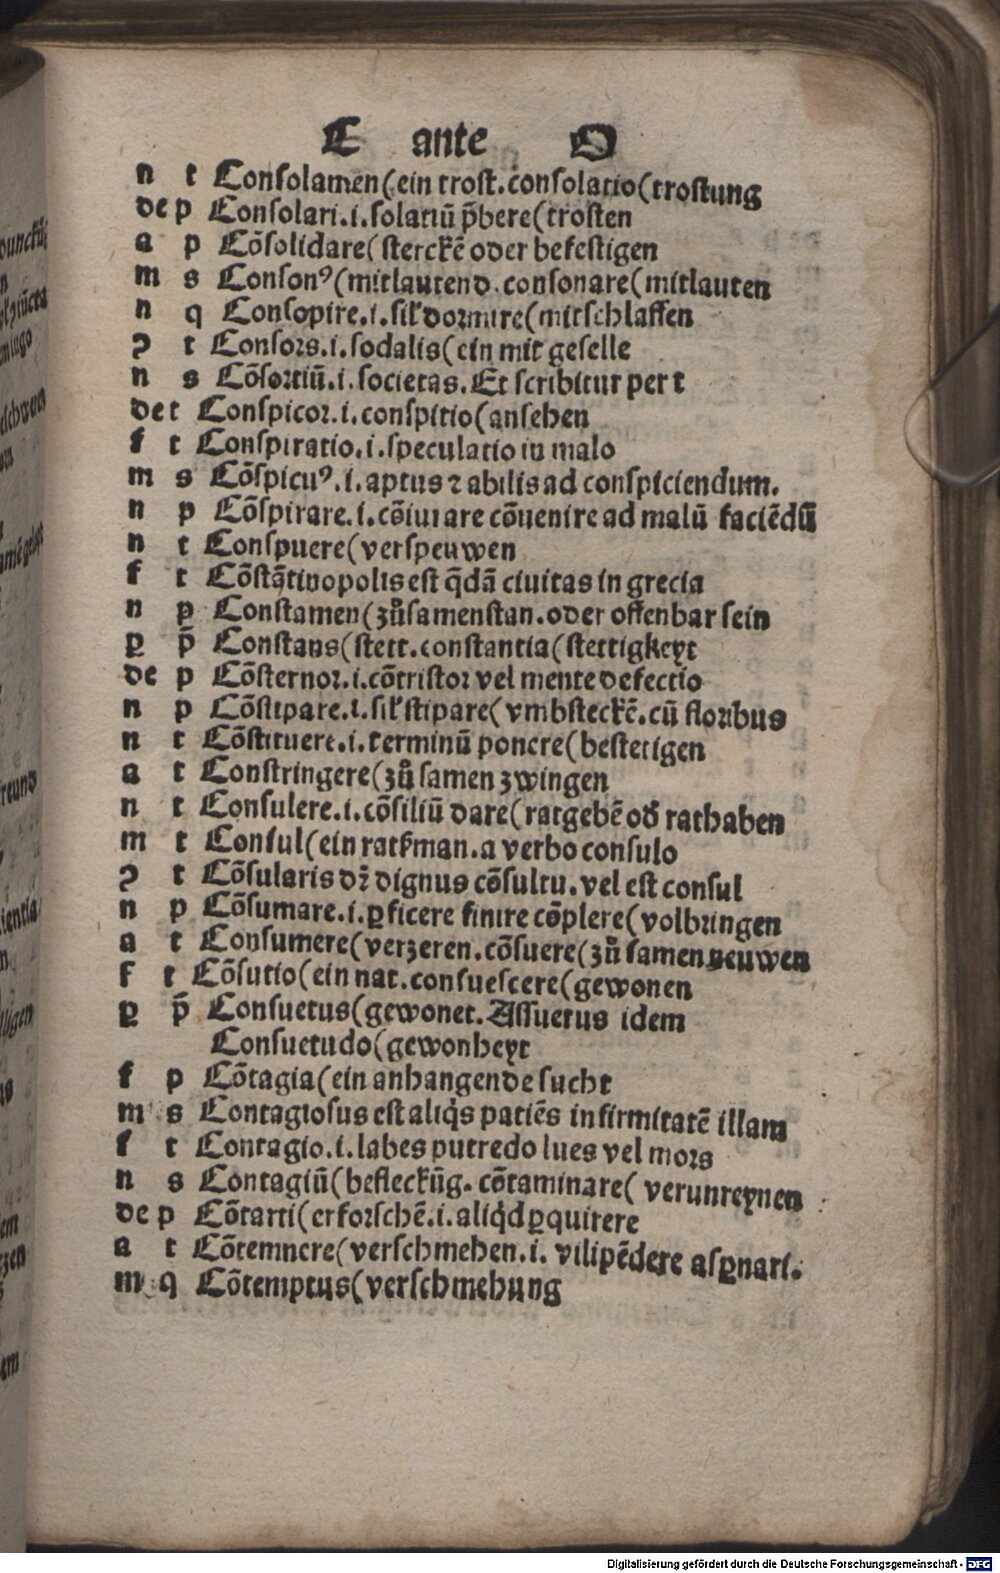 C ante O
n t Consolamen(ein trost.consolatio(trostung
de p Consolari.i.solatiū p̄bere(trosten
a p Cōsolidare(sterckē oder befestigen
m s Consonꝰ(mitlautend.consonare(mitlauten
n q Consopire.i.sil'dormire(mitschlaffen
ꝛ t Consors.i.sodalis(ein mit geselle
n s Cōsortiū.i.societas.Et scribitur per t
de t Conspicor.i.conspitio(ansehen
f t Conspiratio.i.speculatio in malo
m s Cōspicuꝰ.i.aptus ⁊ abilis ad conspiciendum.
n p Cōspirare.i.cōiurare cōuenire ad malū faciēdū
n t Conspuere(verspeuwen
f t Cōstātinopolis est q̄dā ciuitas in grecia
n p Constamen(zůsamenstan.oder offenbar sein
ꝑ p̄ Constans(stett.constantia(stettigkeyt
de p Cōsternor.i.cōtristor vel mente defectio
n p Cōstipare.i.sil'stipare(vmbsteckē.cū floribus
n t Cōstituere.i.terminū ponere(bestetigen
a t Constringere(zů samen zwingen
n t Consulere.i.cōsiliū dare(ratgebē od' rathaben
m t Consul(ein ratkman.a verbo consulo
ꝛ t Cōsularis dr̄ dignus cōsultu.vel est consul
n p Cōsumare.i.ꝑficere finire cōplere(volbringen
a t Consumere(verzeren.cōsuere(zů samen neuwen
f t Cōsutio(ein nat.consuescere(gewonen
ꝑ p̄ Consuetus(gewonet.Assuetus idem
Consuetudo(gewonheyt
f p Cōtagia(ein anhangende sucht
m s Contagiosus est aliq̇s patiēs infirmitatē illam
f t Contagio.i.labes putredo lues vel mors
n s Contagiū(befleckūg.cōtaminare(verunreynen
de p Cōtarri(erforschē.i.aliq̇d ꝑquirere
a t Cōtemnere(verschmehen.i. vilipēdere asꝑnari.
m q Cōtemptus(verschmehung
Digitalisierung gefördert durch die Deutsche Forschungsgemeinschaft - DFG